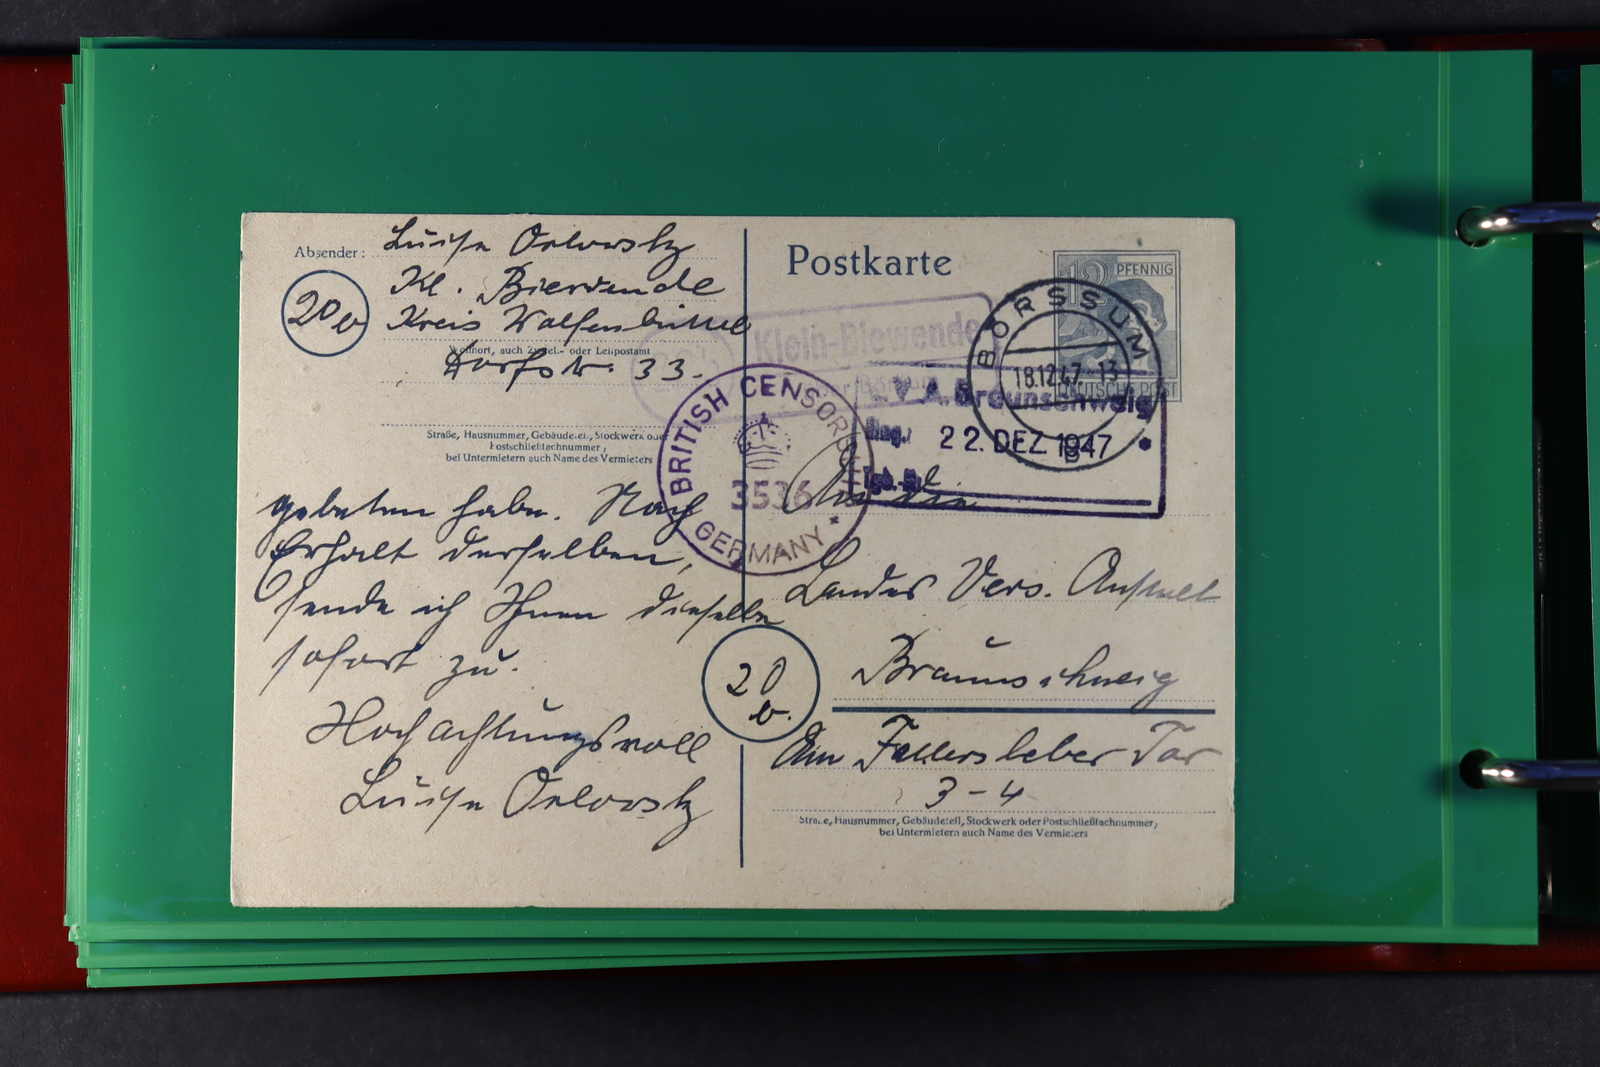 Absender: Luise Orlowsky
Kl. Biewende
20b
Kreis Wolfenbüttel
Wohnort, auch Zustell- oder Leitpostamt
Dorfstr. 33.
Straße, Hausnummer, Gebäudeteil, Stockwerk oder
Postschließfachnummer;
bei Untermietern auch Name des Vermieters
gebeten habe. Nach
Erhalt derselben,
sende ich Ihnen dieselbe
sofort zu.
Hochachtungsvoll
Luise Orlowsky
Postkarte
12 PFENNIG
DEUTSCHE POST
BÖRSSUM
18.12.47.-13
Klein-Biewende
BRITISH CENSORSHIP
3536
GERMANY
L.V.A. Braunschweig
Eing.:
22. DEZ. 1947
Tgb.-Nr.
An die
Landes Vers. Anstalt
20
b.
Braunschweig
Am Fallersleber Tor
3-4
Straße, Hausnummer, Gebäudeteil, Stockwerk oder Postschließfachnummer;
bei Untermietern auch Name des Vermieters